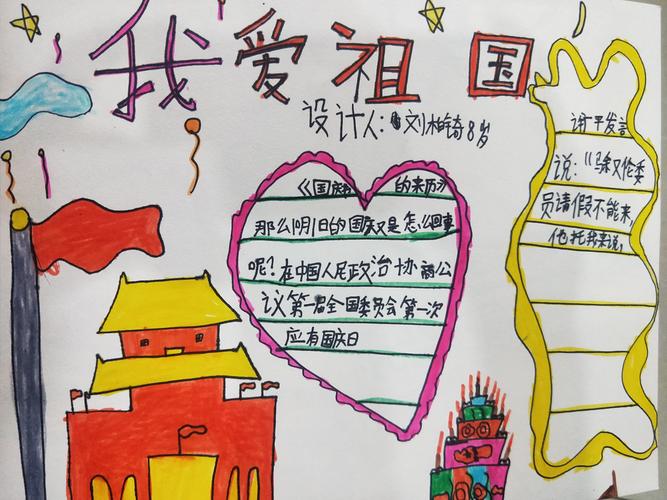 我爱祖国
设计人:刘柏锜8岁
《国庆 的来历》
那么10月1日的国庆又是怎么回事
呢?在中国人民政治协商会
议第一届全国委员会第一次
应有国庆日
谢平发言
说:"马叙伦委
员请假不能来,
他托我来说,